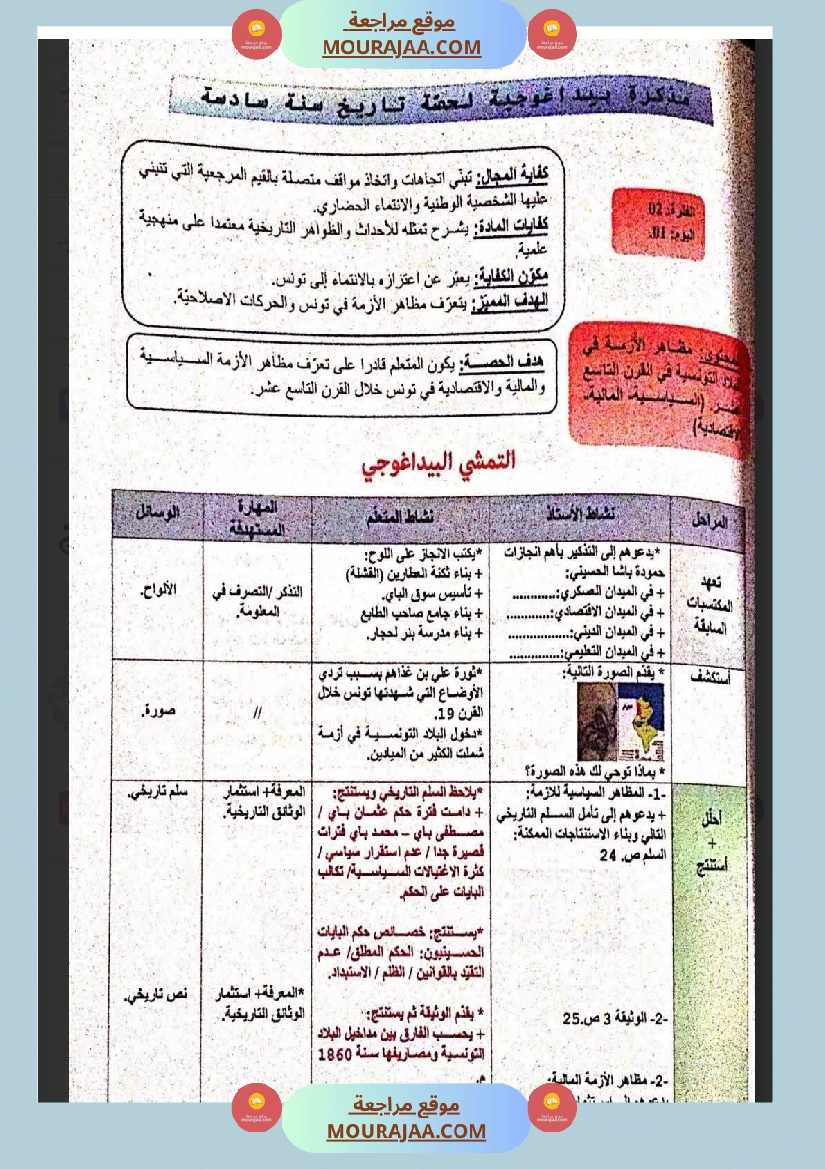 موقع مراجعة
MOURAJAA.COM
مذكرة بيداغوجية لحصّة تاريخ سنة سادسة
كفاية المجال: تبنّي اتجاهات واتخاذ مواقف متصلة بالقيم المرجعية التي تنبني
عليها الشخصية الوطنية والانتماء الحضاري.
كفايات المادة: يشرح تمثله للأحداث والظواهر التاريخية معتمدا على منهجية
علمية.
مكوّن الكفاية: يعبّر عن اعتزازه بالانتماء إلى تونس.
الهدف المميّز: يتعرّف مظاهر الأزمة في تونس والحركات الاصلاحيّة.
الفترة: 02
اليوم: 01.
هدف الحصة: يكون المتعلم قادرا على تعرّف مظاهر الأزمة السياسية
والمالية والاقتصادية في تونس خلال القرن التاسع عشر.
مظاهر الأزمة في
التونسية في القرن التاسع
(السياسية، المالية،
التمشي البيداغوجي
المراحل
نشاط الأستاذ
نشاط المتعلّم
المهارة
المستهدفة
الوسائل
تعهد
المكتسبات
السابقة
*يدعوهم إلى التذكير بأهم انجازات
حمودة باشا الحسيني:
+ في الميدان العسكري:............
+ في الميدان الاقتصادي:............
+ في الميدان الديني:.................
+ في الميدان التعليمي:..............
*يكتب الانجاز على اللوح:
+ بناء ثكنة العطارين (القشلة)
+ تأسيس سوق الباي.
+ بناء جامع صاحب الطابع
+ بناء مدرسة بئر لحجار.
التذكر /التصرف في
المعلومة.
الألواح.
أستكشف
* يقدّم الصورة التالية:
* بماذا توحي لك هذه الصورة؟
*ثورة علي بن غذاهم بسبب تردي
الأوضاع التي شهدتها تونس خلال
القرن 19.
*دخول البلاد التونسية في أزمة
شملت الكثير من الميادين.
//
صورة.
أحلّل
+
أستنتج
-1- المظاهر السياسية للأزمة:
+ يدعوهم إلى تأمل السلم التاريخي
التالي وبناء الاستنتاجات الممكنة:
السلم ص. 24
-2- الوثيقة 3 ص.25
-2- مظاهر الأزمة المالية:
*يلاحظ السلم التاريخي ويستنتج:
+ دامت فترة حكم عثمان باي /
مصطفى باي – محمد باي فترات
قصيرة جدا / عدم استقرار سياسي /
كثرة الاغتيالات السياسية/ تكالب
البايات على الحكم.
*يستنتج: خصائص حكم البايات
الحسينيون: الحكم المطلق/ عدم
التقيّد بالقوانين / الظلم / الاستبداد.
* يقدّم الوثيقة ثم يستنتج:
+ يحسب الفارق بين مداخيل البلاد
التونسية ومصاريفها سنة 1860
م.
المعرفة+ استثمار
الوثائق التاريخية.
*المعرفة+ استثمار
الوثائق التاريخية.
سلم تاريخي.
نص تاريخي.
موقع مراجعة
MOURAJAA.COM